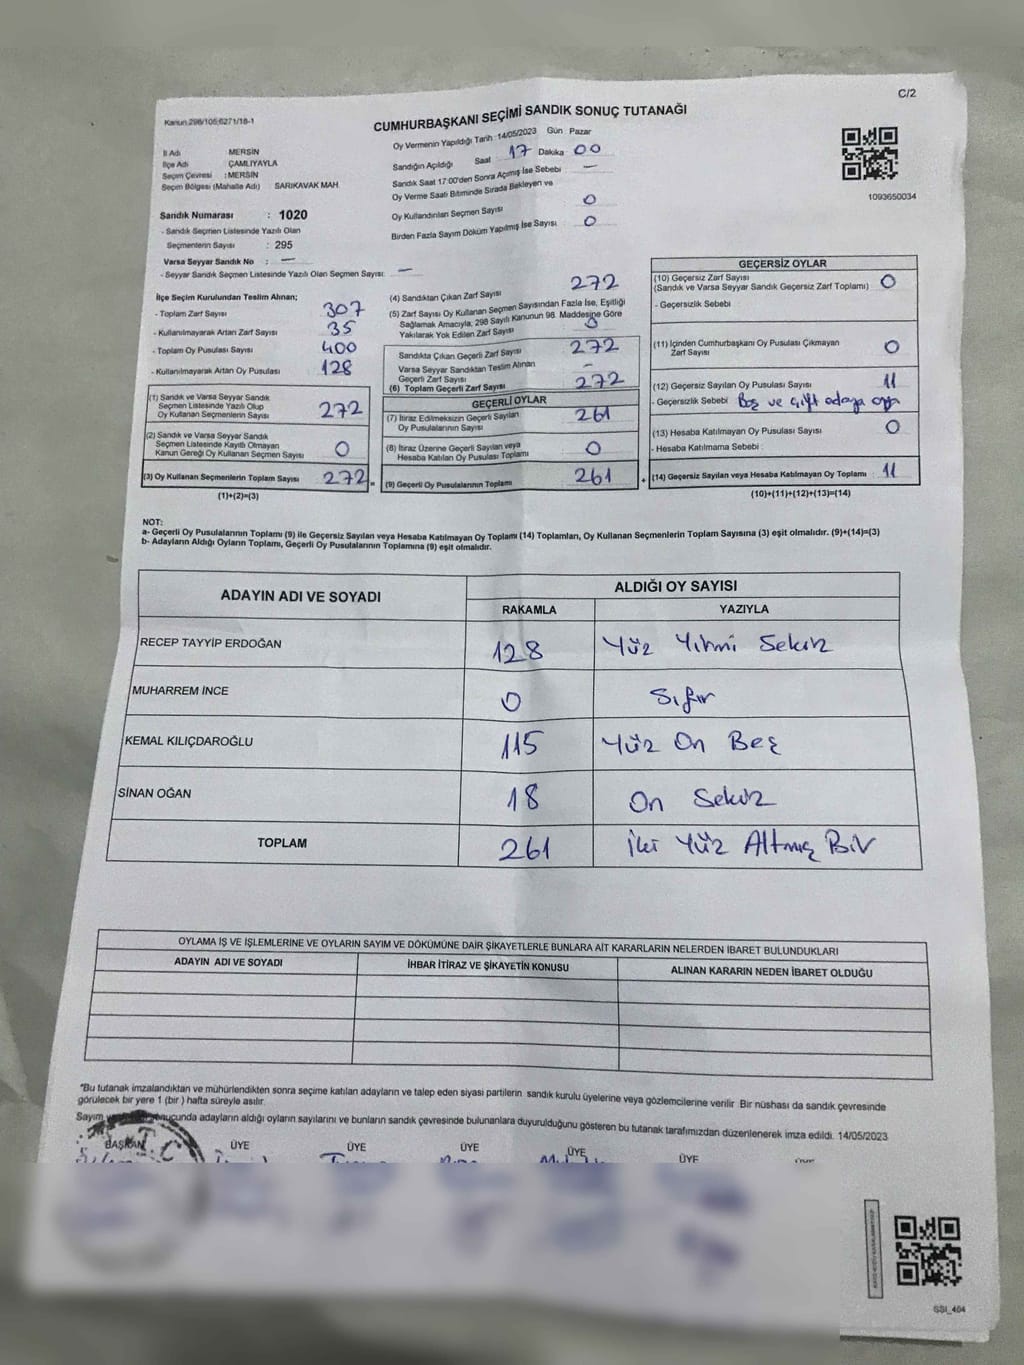 C/2
Kanun 298/105;6271/18-1
CUMHURBAŞKANI SEÇİMİ SANDIK SONUÇ TUTANAĞI
Oy Vermenin Yapıldığı Tarih : 14/05/2023 Gün Pazar
Sandığın Açıldığı Saat 17 Dakika 00
Sandık Saat 17:00'den Sonra Açımış İse Sebebi —
Oy Verme Saati Bitiminde Sırada Bekleyen ve
Oy Kullandırılan Seçmen Sayısı 0
Birden Fazla Sayım Döküm Yapılmış İse Sayısı 0
İl Adı : MERSİN
İlçe Adı : ÇAMLIYAYLA
Seçim Çevresi : MERSİN
Seçim Bölgesi (Mahalle Adı) SARIKAVAK MAH.
Sandık Numarası : 1020
- Sandık Seçmen Listesinde Yazılı Olan
Seçmenlerin Sayısı : 295
Varsa Seyyar Sandık No : —
- Seyyar Sandık Seçmen Listesinde Yazılı Olan Seçmen Sayısı: —
1093650034
İlçe Seçim Kurulundan Teslim Alınan;
- Toplam Zarf Sayısı 307
- Kullanılmayarak Artan Zarf Sayısı 35
- Toplam Oy Pusulası Sayısı 400
- Kullanılmayarak Artan Oy Pusulası 128
(1) Sandık ve Varsa Seyyar Sandık
Seçmen Listesinde Yazılı Olup
Oy Kullanan Seçmenlerin Sayısı 272
(2) Sandık ve Varsa Seyyar Sandık
Seçmen Listesinde Kayıtlı Olmayan
Kanun Gereği Oy Kullanan Seçmen Sayısı 0
(3) Oy Kullanan Seçmenlerin Toplam Sayısı 272 =
(1)+(2)=(3)
(4) Sandıktan Çıkan Zarf Sayısı 272
(5) Zarf Sayısı Oy Kullanan Seçmen Sayısından Fazla İse, Eşitliği
Sağlamak Amacıyla, 298 Sayılı Kanunun 98. Maddesine Göre
Yakılarak Yok Edilen Zarf Sayısı 0
Sandıkta Çıkan Geçerli Zarf Sayısı 272
Varsa Seyyar Sandıktan Teslim Alınan
Geçerli Zarf Sayısı -
(6) Toplam Geçerli Zarf Sayısı 272
GEÇERLİ OYLAR
(7) İtiraz Edilmeksizin Geçerli Sayılan
Oy Pusulalarının Sayısı 261
(8) İtiraz Üzerine Geçerli Sayılan veya
Hesaba Katılan Oy Pusulası Toplamı 0
(9) Geçerli Oy Pusulalarının Toplamı 261 +
GEÇERSİZ OYLAR
(10) Geçersiz Zarf Sayısı
(Sandık ve Varsa Seyyar Sandık Geçersiz Zarf Toplamı) 0
- Geçersizlik Sebebi
(11) İçinden Cumhurbaşkanı Oy Pusulası Çıkmayan
Zarf Sayısı 0
(12) Geçersiz Sayılan Oy Pusulası Sayısı 11
- Geçersizlik Sebebi Boş ve çift adaya oy
(13) Hesaba Katılmayan Oy Pusulası Sayısı 0
- Hesaba Katılmama Sebebi :
(14) Geçersiz Sayılan veya Hesaba Katılmayan Oy Toplamı : 11
(10)+(11)+(12)+(13)=(14)
NOT:
a- Geçerli Oy Pusulalarının Toplamı (9) ile Geçersiz Sayılan veya Hesaba Katılmayan Oy Toplamı (14) Toplamları, Oy Kullanan Seçmenlerin Toplam Sayısına (3) eşit olmalıdır. (9)+(14)=(3)
b- Adayların Aldığı Oyların Toplamı, Geçerli Oy Pusulalarının Toplamına (9) eşit olmalıdır.
ADAYIN ADI VE SOYADI ALDIĞI OY SAYISI
RAKAMLA YAZIYLA
RECEP TAYYİP ERDOĞAN 128 Yüz Yirmi Sekiz
MUHARREM İNCE 0 Sıfır
KEMAL KILIÇDAROĞLU 115 Yüz On Beş
SİNAN OĞAN 18 On Sekiz
TOPLAM 261 İki Yüz Altmış Bir
OYLAMA İŞ VE İŞLEMLERİNE VE OYLARIN SAYIM VE DÖKÜMÜNE DAİR ŞİKAYETLERLE BUNLARA AİT KARARLARIN NELERDEN İBARET BULUNDUKLARI
ADAYIN ADI VE SOYADI İHBAR İTİRAZ VE ŞİKAYETİN KONUSU ALINAN KARARIN NEDEN İBARET OLDUĞU
*Bu tutanak imzalandıktan ve mühürlendikten sonra seçime katılan adayların ve talep eden siyasi partilerin sandık kurulu üyelerine veya gözlemcilerine verilir. Bir nüshası da sandık çevresinde
görülecek bir yere 1 (bir ) hafta süreyle asılır.
Sayım ve adayların aldığı oyların sayılarını ve bunların sandık çevresinde bulunanlara duyurulduğunu gösteren bu tutanak tarafımızdan düzenlenerek imza edildi. 14/05/2023
BAŞKAN ÜYE ÜYE ÜYE ÜYE ÜYE
T.C
SSI_404